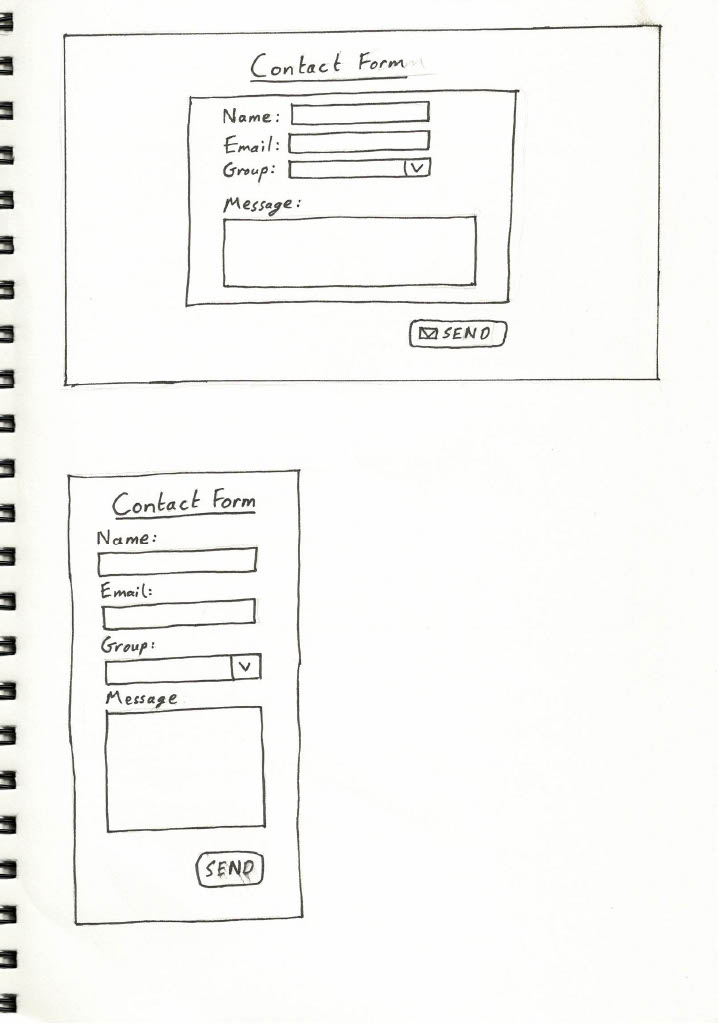 Contact Form
Name:
Email:
Group:
Message:
SEND
Contact Form
Name:
Email:
Group:
Message
SEND